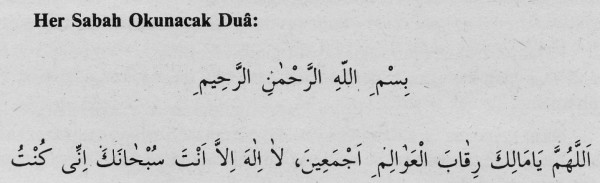 Her Sabah Okunacak Duâ:
بِسْمِ اللّٰهِ الرَّحْمٰنِ الرَّحِيمِ
اَللَّهُمَّ يَامَالِكَ رِقَابَ الْعَوَالِمِ اَجْمَعِينَ، لاَ اِلٰهَ اِلاَّ اَنْتَ سُبْحَانَكَ اِنِّى كُنْتُ